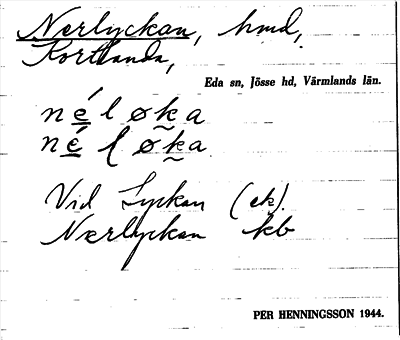 Nærlyckan, hmd,
Kortlanda,
Eda sn, Jösse hd, Värmlands län.
né̲l øk̰a
né̲l øk̰a
Vid Lyckan (ek).
Nærlyckan kb
PER HENNINGSSON 1944.